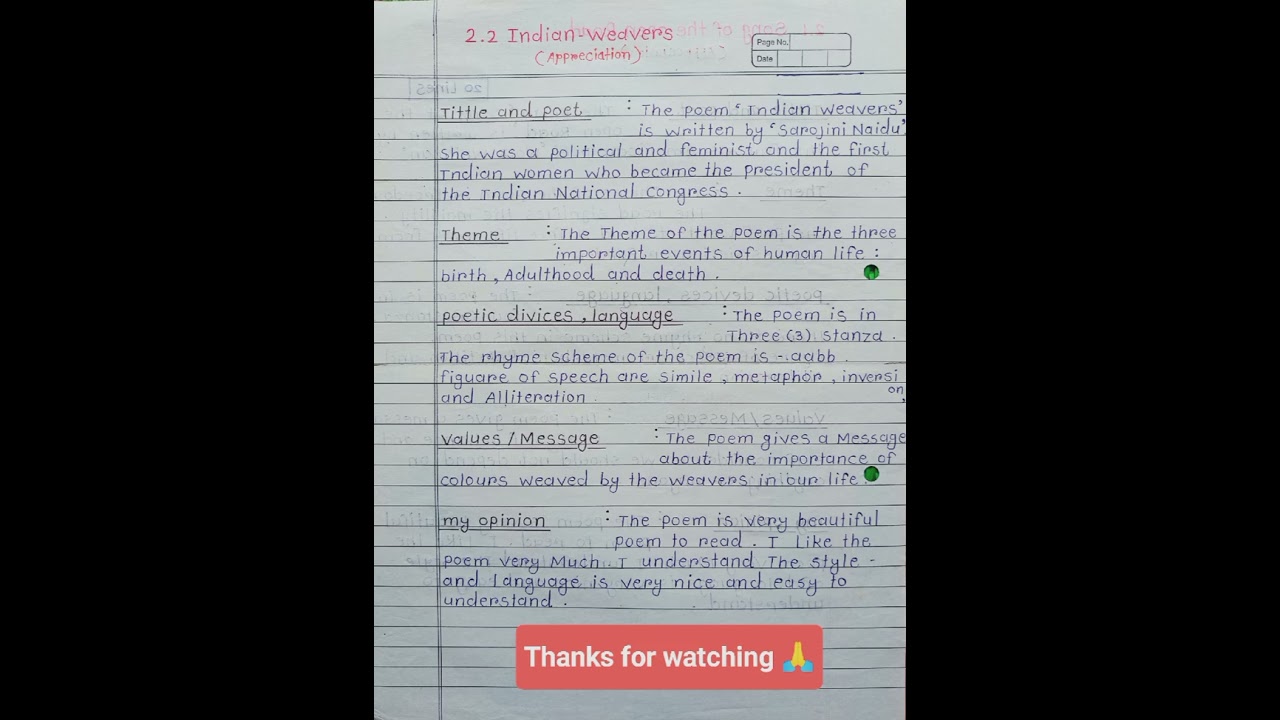 2.2 Indian Weavers
(Appreciation)
Page No.
Date
Tittle and poet : The poem 'Indian Weavers'
is written by 'Sarojini Naidu'
she was a political and feminist and the first
Indian women who became the president of
the Indian National Congress.
Theme : The Theme of the poem is the three
important events of human life :
birth, Adulthood and death.
poetic divices, language : The poem is in
Three (3) stanza.
The rhyme scheme of the poem is -. aabb.
figuare of speech are simile, metaphor, inversi
on,
and Alliteration.
values / Message : The poem gives a Message
about the importance of
colours weaved by the weavers in our life.
my opinion : The poem is very beautiful
poem to read. I Like the
poem very Much. I understand The style -
and language is very nice and easy to
understand.
Thanks for watching 🙏